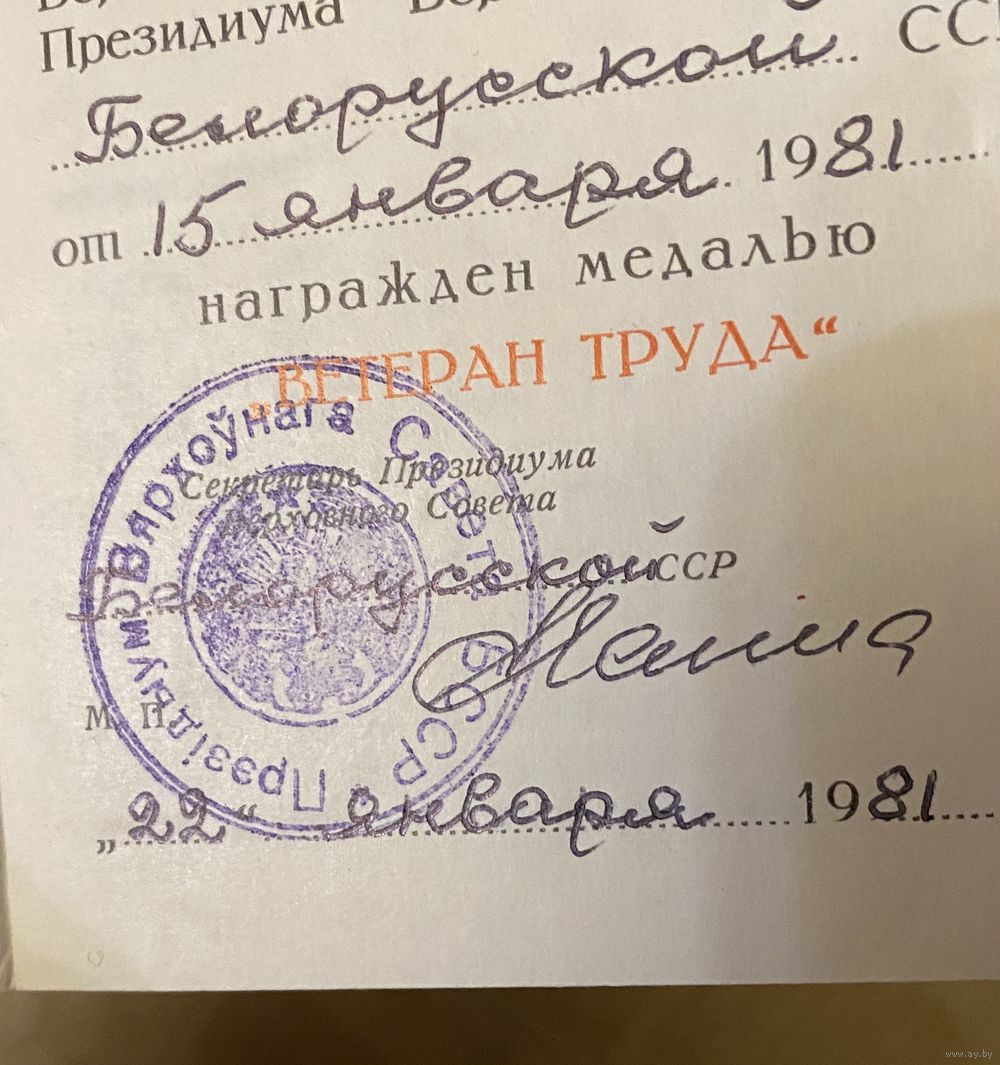 Президиума
Белорусской СС
от 15 января 1981
награжден медалью
„ВЕТЕРАН ТРУДА“
Секретарь Президиума
Верховного Совета
Белорусской ССР
М. П.
„22“ января 1981
Прэзідыум Вярхоўнага Савета БССР
www.ay.by